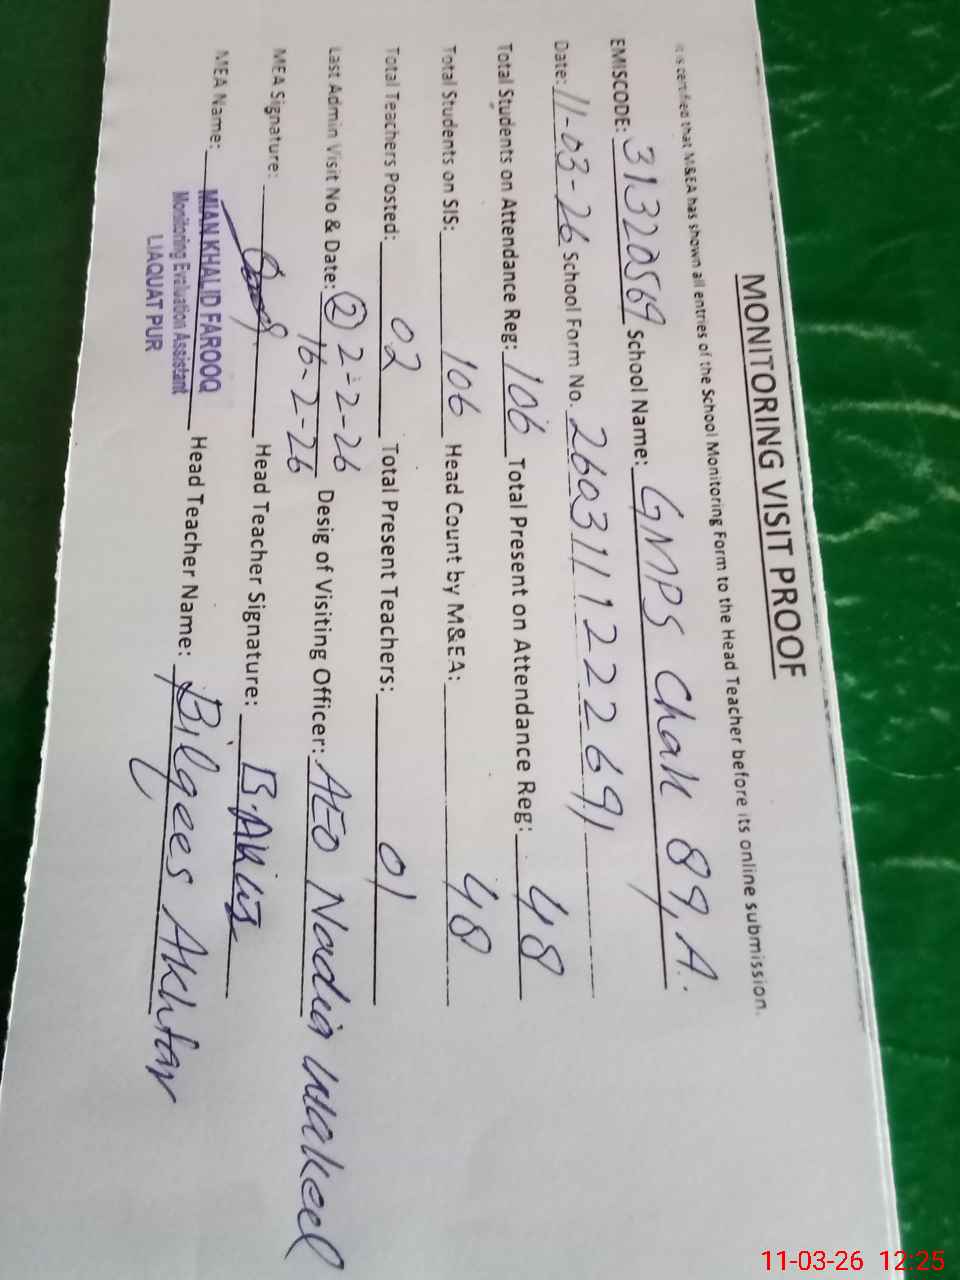 MONITORING VISIT PROOF
It is certified that M&EA has shown all entries of the School Monitoring Form to the Head Teacher before its online submission.
EMISCODE: 31320569 School Name: GMPS Chak 89, A.
Date: 11-03-26 School Form No. 260311122269
Total Students on Attendance Reg: 106 Total Present on Attendance Reg: 48
Total Students on SIS: 106 Head Count by M&EA: 48
Total Teachers Posted: 02 Total Present Teachers: 01
Last Admin Visit No & Date: ② 2-2-26 Desig of Visiting Officer: AEO Nadia Wakeel
16-2-26
MEA Signature: Head Teacher Signature:
MEA Name: MIAN KHALID FAROOQ Head Teacher Name: Bilqees Akhtar
Monitoring Evaluation Assistant
LIAQUAT PUR
11-03-26 12:25